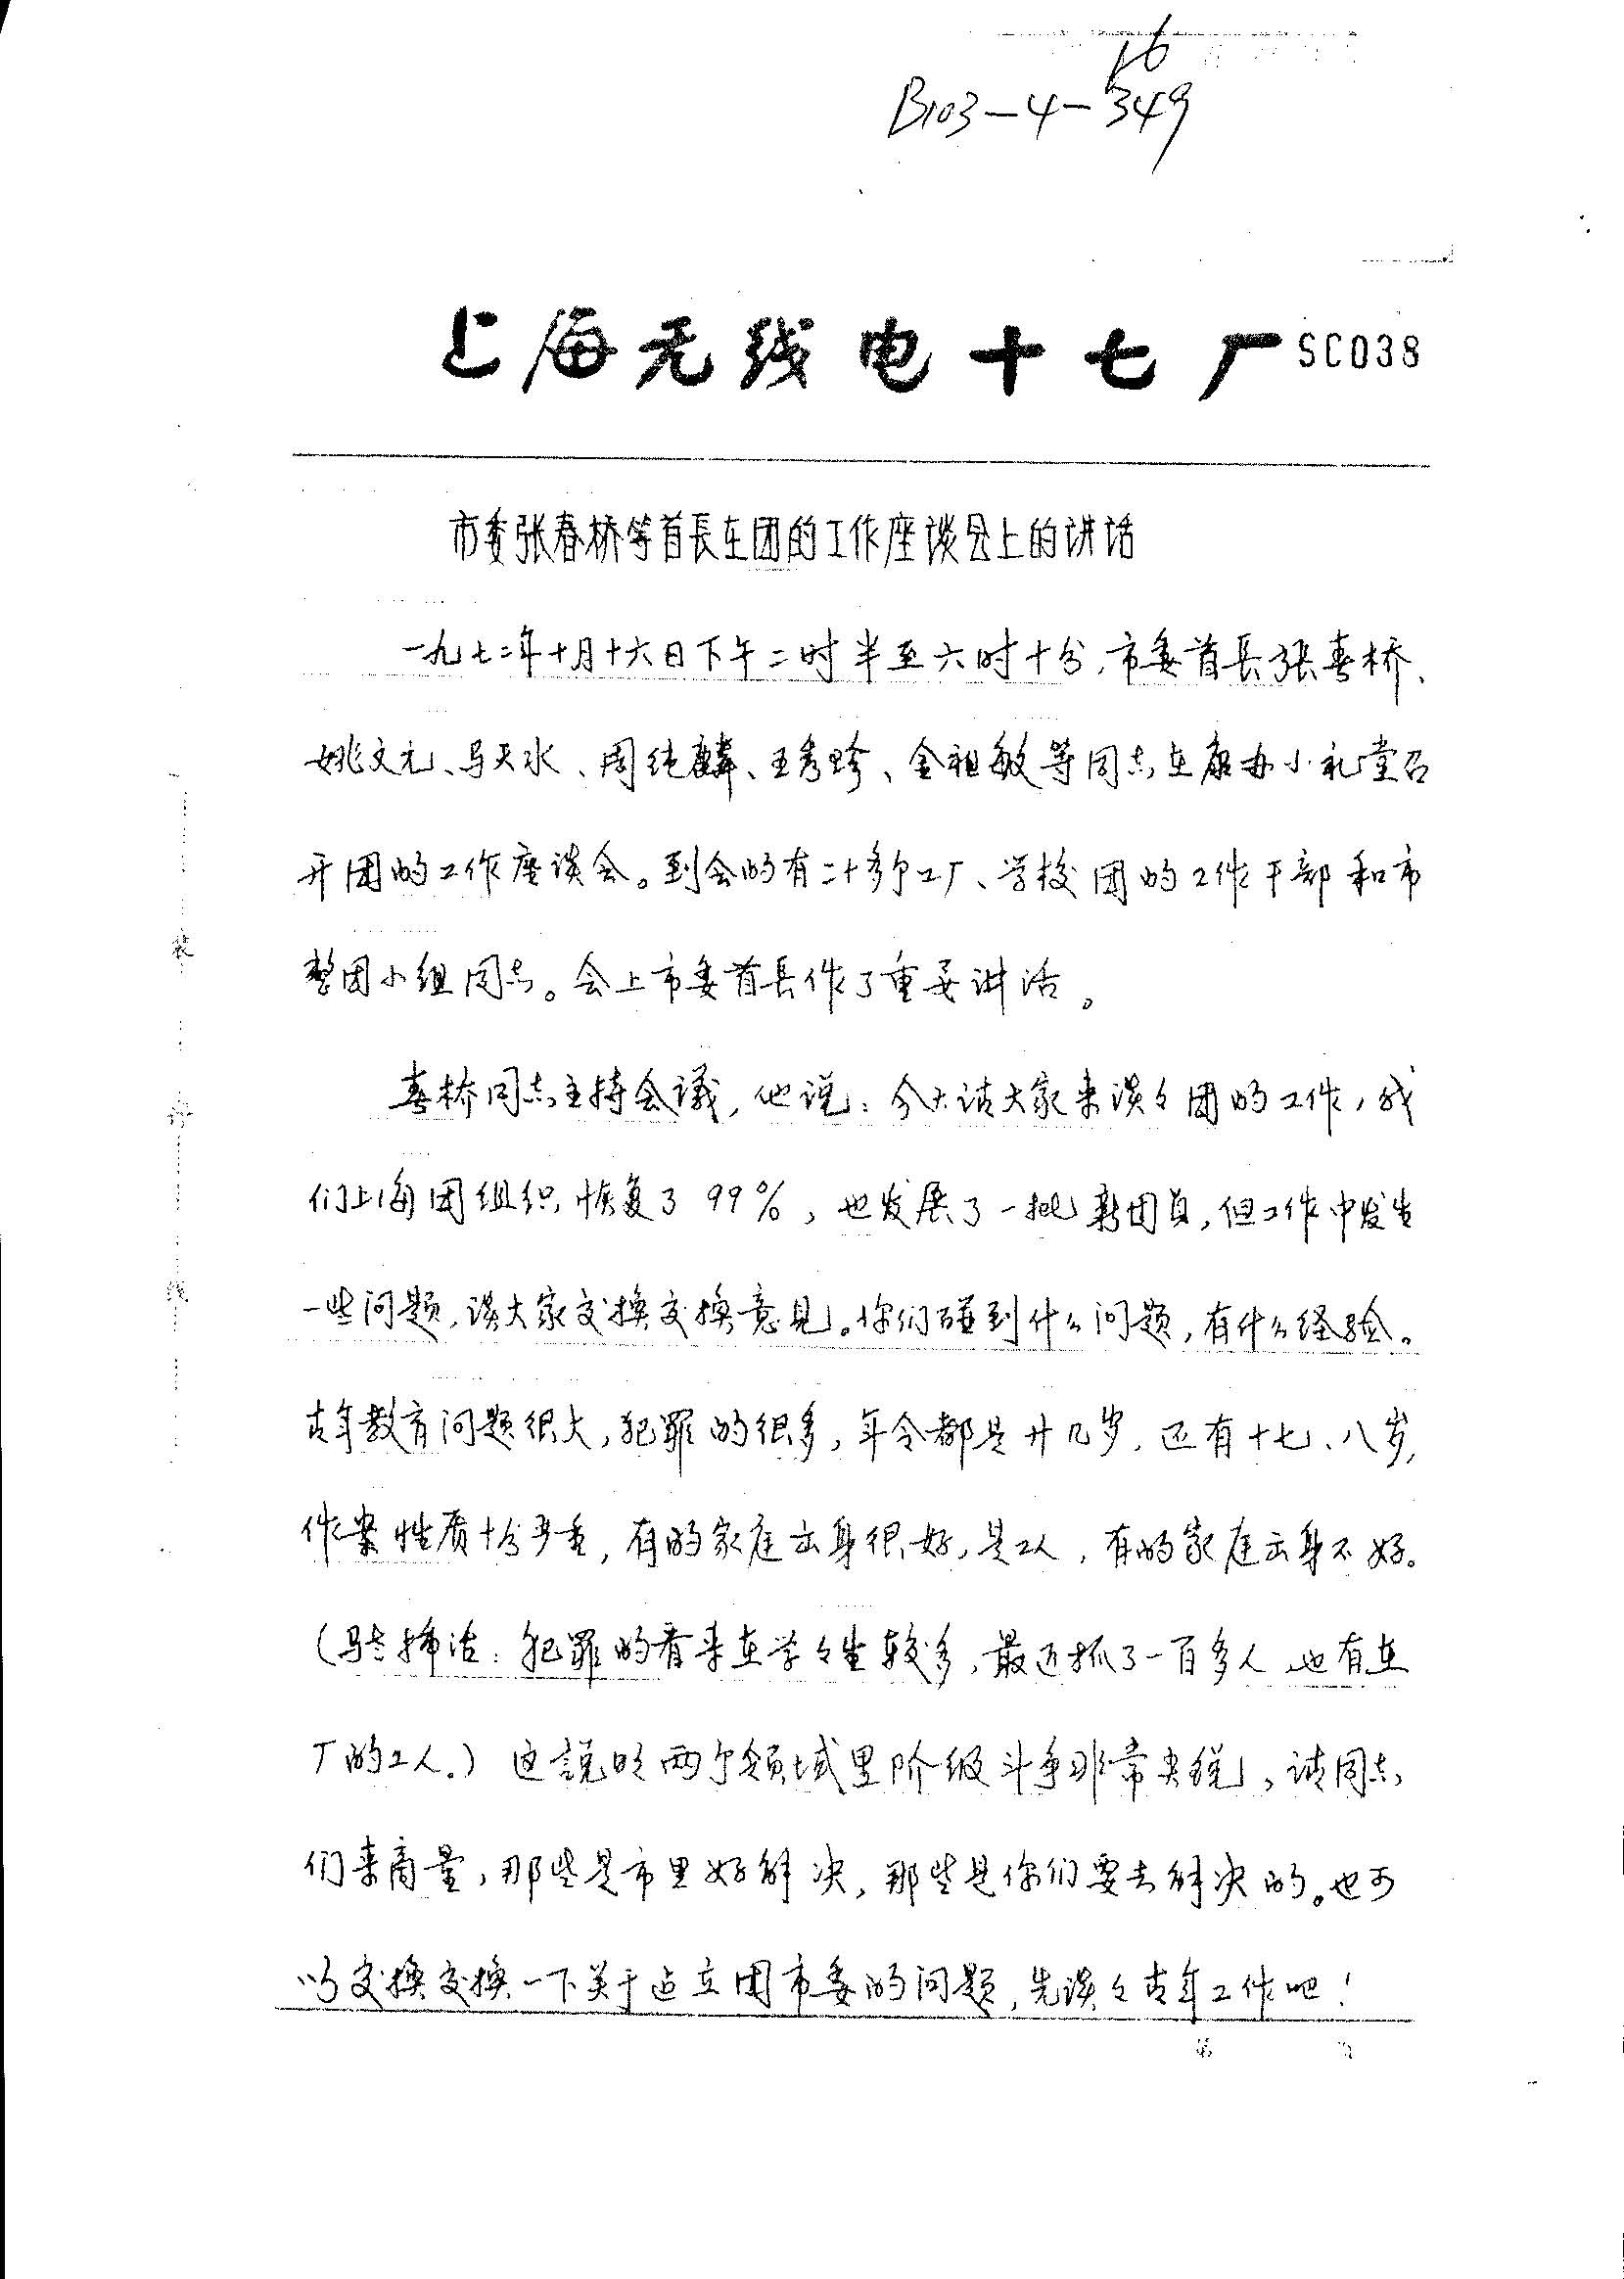 16
B103-4-349
上海无线电十七厂 SC038
市委张春桥等首長在团的工作座谈会上的讲话
一九七二年十月十六日下午二时半至六时十分，市委首長张春桥、
姚文元、马天水、周纯麟、王秀珍、金祖敏等同志在康办小礼堂召
开团的工作座谈会。到会的有二十多个工厂、学校团的工作干部和市
整团小组同志。会上市委首長作了重要讲话。
春桥同志主持会議，他说：今天请大家来谈々团的工作，我
们上海团组织恢复了99%，也发展了一批新团员，但工作中发生
一些问题，请大家交换交换意見。你们碰到什么问题，有什么经验。
青年教育问题很大，犯罪的很多，年令都是廿几岁，还有十七、八岁，
作案性质十分严重，有的家庭出身很好，是工人，有的家庭出身不好。
（马老插话：犯罪的看来在学々生较多，最近抓了一百多人，也有在
厂的工人。）这說明两个领域里阶级斗争非常尖锐，请同志
们来商量，那些是市里好解决，那些是你们要去解决的。也可
以交换交换一下关于建立团市委的问题，先谈々青年工作吧！
第 页
装
订
线